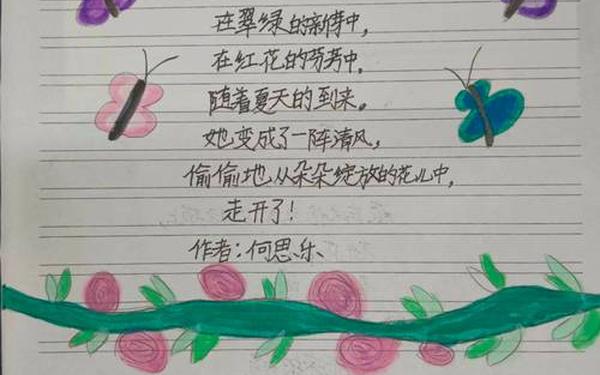 在翠绿的新傅中,
在红花的芬芳中,
随着夏天的到来。
她变成了一阵清风,
偷偷地从朵朵绽放的花儿中,
走开了!
作者:何思乐